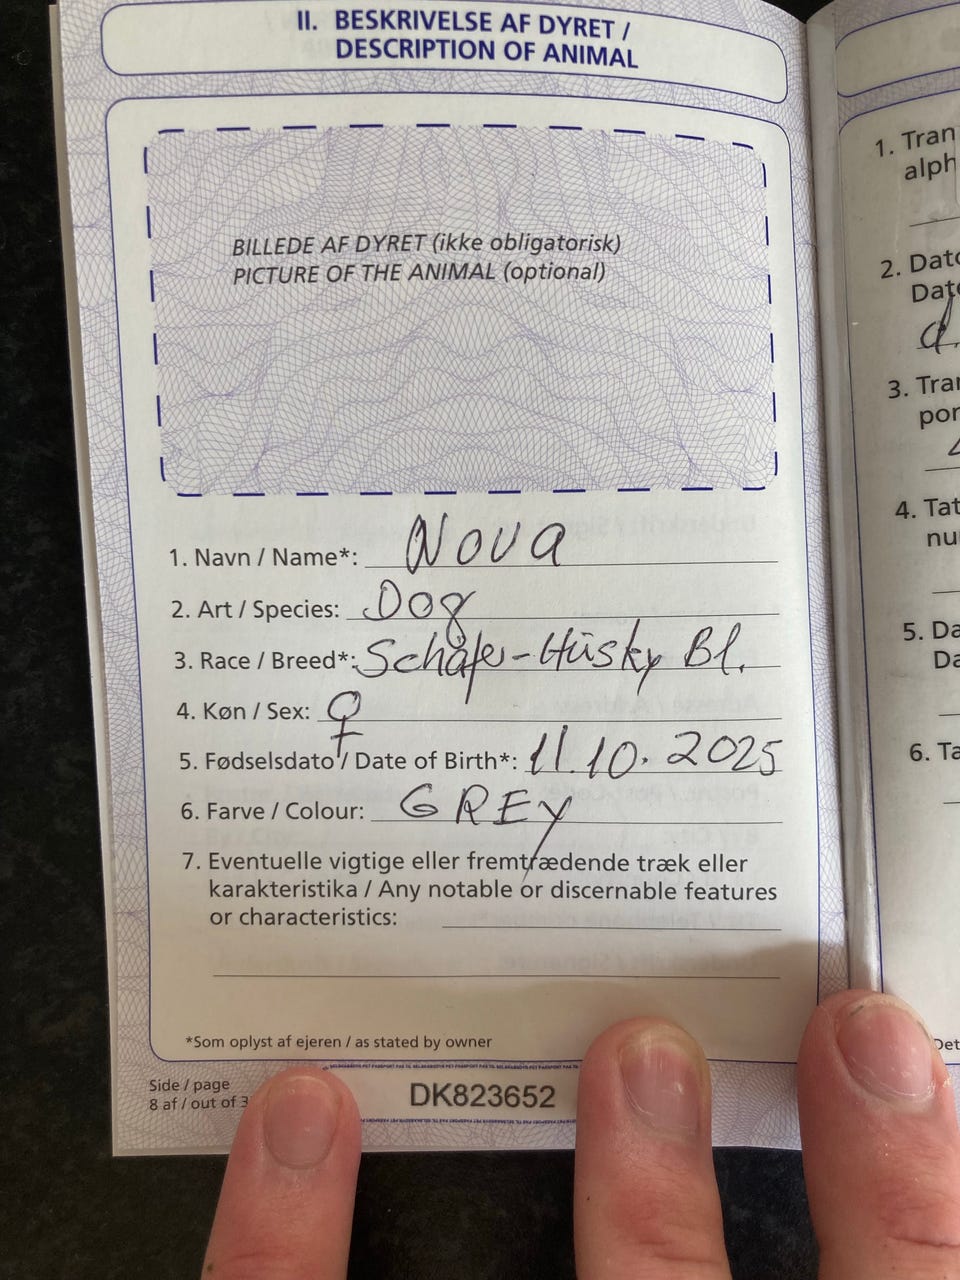 II. BESKRIVELSE AF DYRET /
DESCRIPTION OF ANIMAL
BILLEDE AF DYRET (ikke obligatorisk)
PICTURE OF THE ANIMAL (optional)
1. Navn / Name*: Nova
2. Art / Species: Dog
3. Race / Breed*: Schäfer-Husky Bl.
4. Køn / Sex: ♀
5. Fødselsdato / Date of Birth*: 11.10.2025
6. Farve / Colour: GREY
7. Eventuelle vigtige eller fremtrædende træk eller
karakteristika / Any notable or discernable features
or characteristics:
*Som oplyst af ejeren / as stated by owner
Side / page
8 af / out of 3
DK823652
1. Tran
alph
2. Dato
Date
d.
3. Tran
por
4. Tat
nu
5. Da
Da
6. Ta
Det